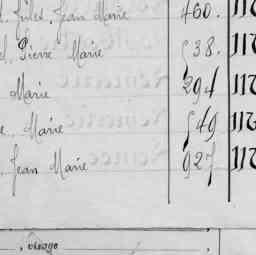 Jean Marie 460. 117
Pierre Marie 538. 117
Marie 294 117
Marie 549 117
Jean Marie 927 117
, visage